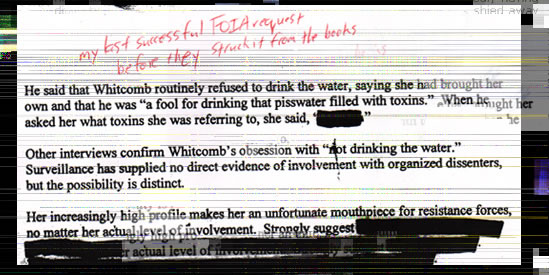 shied away
my last successful FOIA request
before they struck it from the books
He said that Whitcomb routinely refused to drink the water, saying she had brought her
own and that he was “a fool for drinking that pisswater filled with toxins.” When he
asked her what toxins she was referring to, she said, “ ”
Other interviews confirm Whitcomb's obsession with “not drinking the water.”
Surveillance has supplied no direct evidence of involvement with organized dissenters,
but the possibility is distinct.
Her increasingly high profile makes her an unfortunate mouthpiece for resistance forces,
no matter her actual level of involvement. Strongly suggest
r actual level of involvement